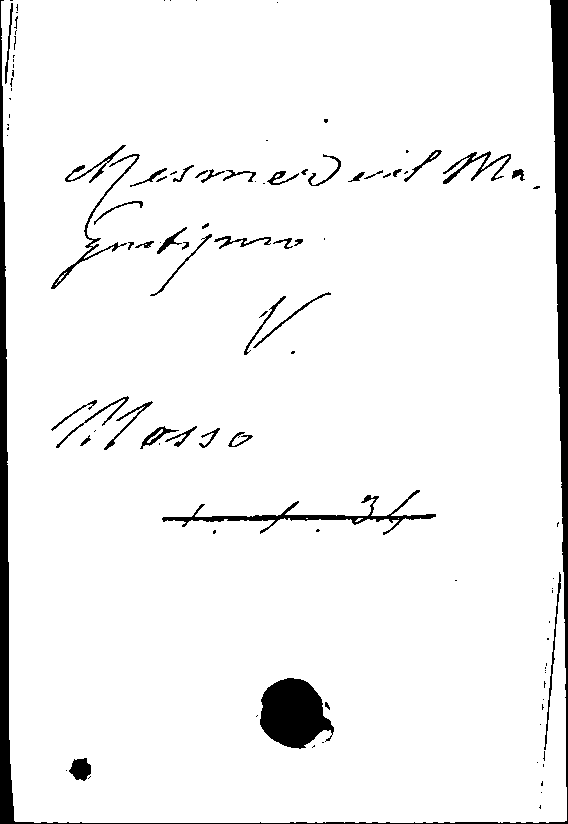 Mesmer e il Ma-
gnetismo
V.
Mosso
1. 1. 34